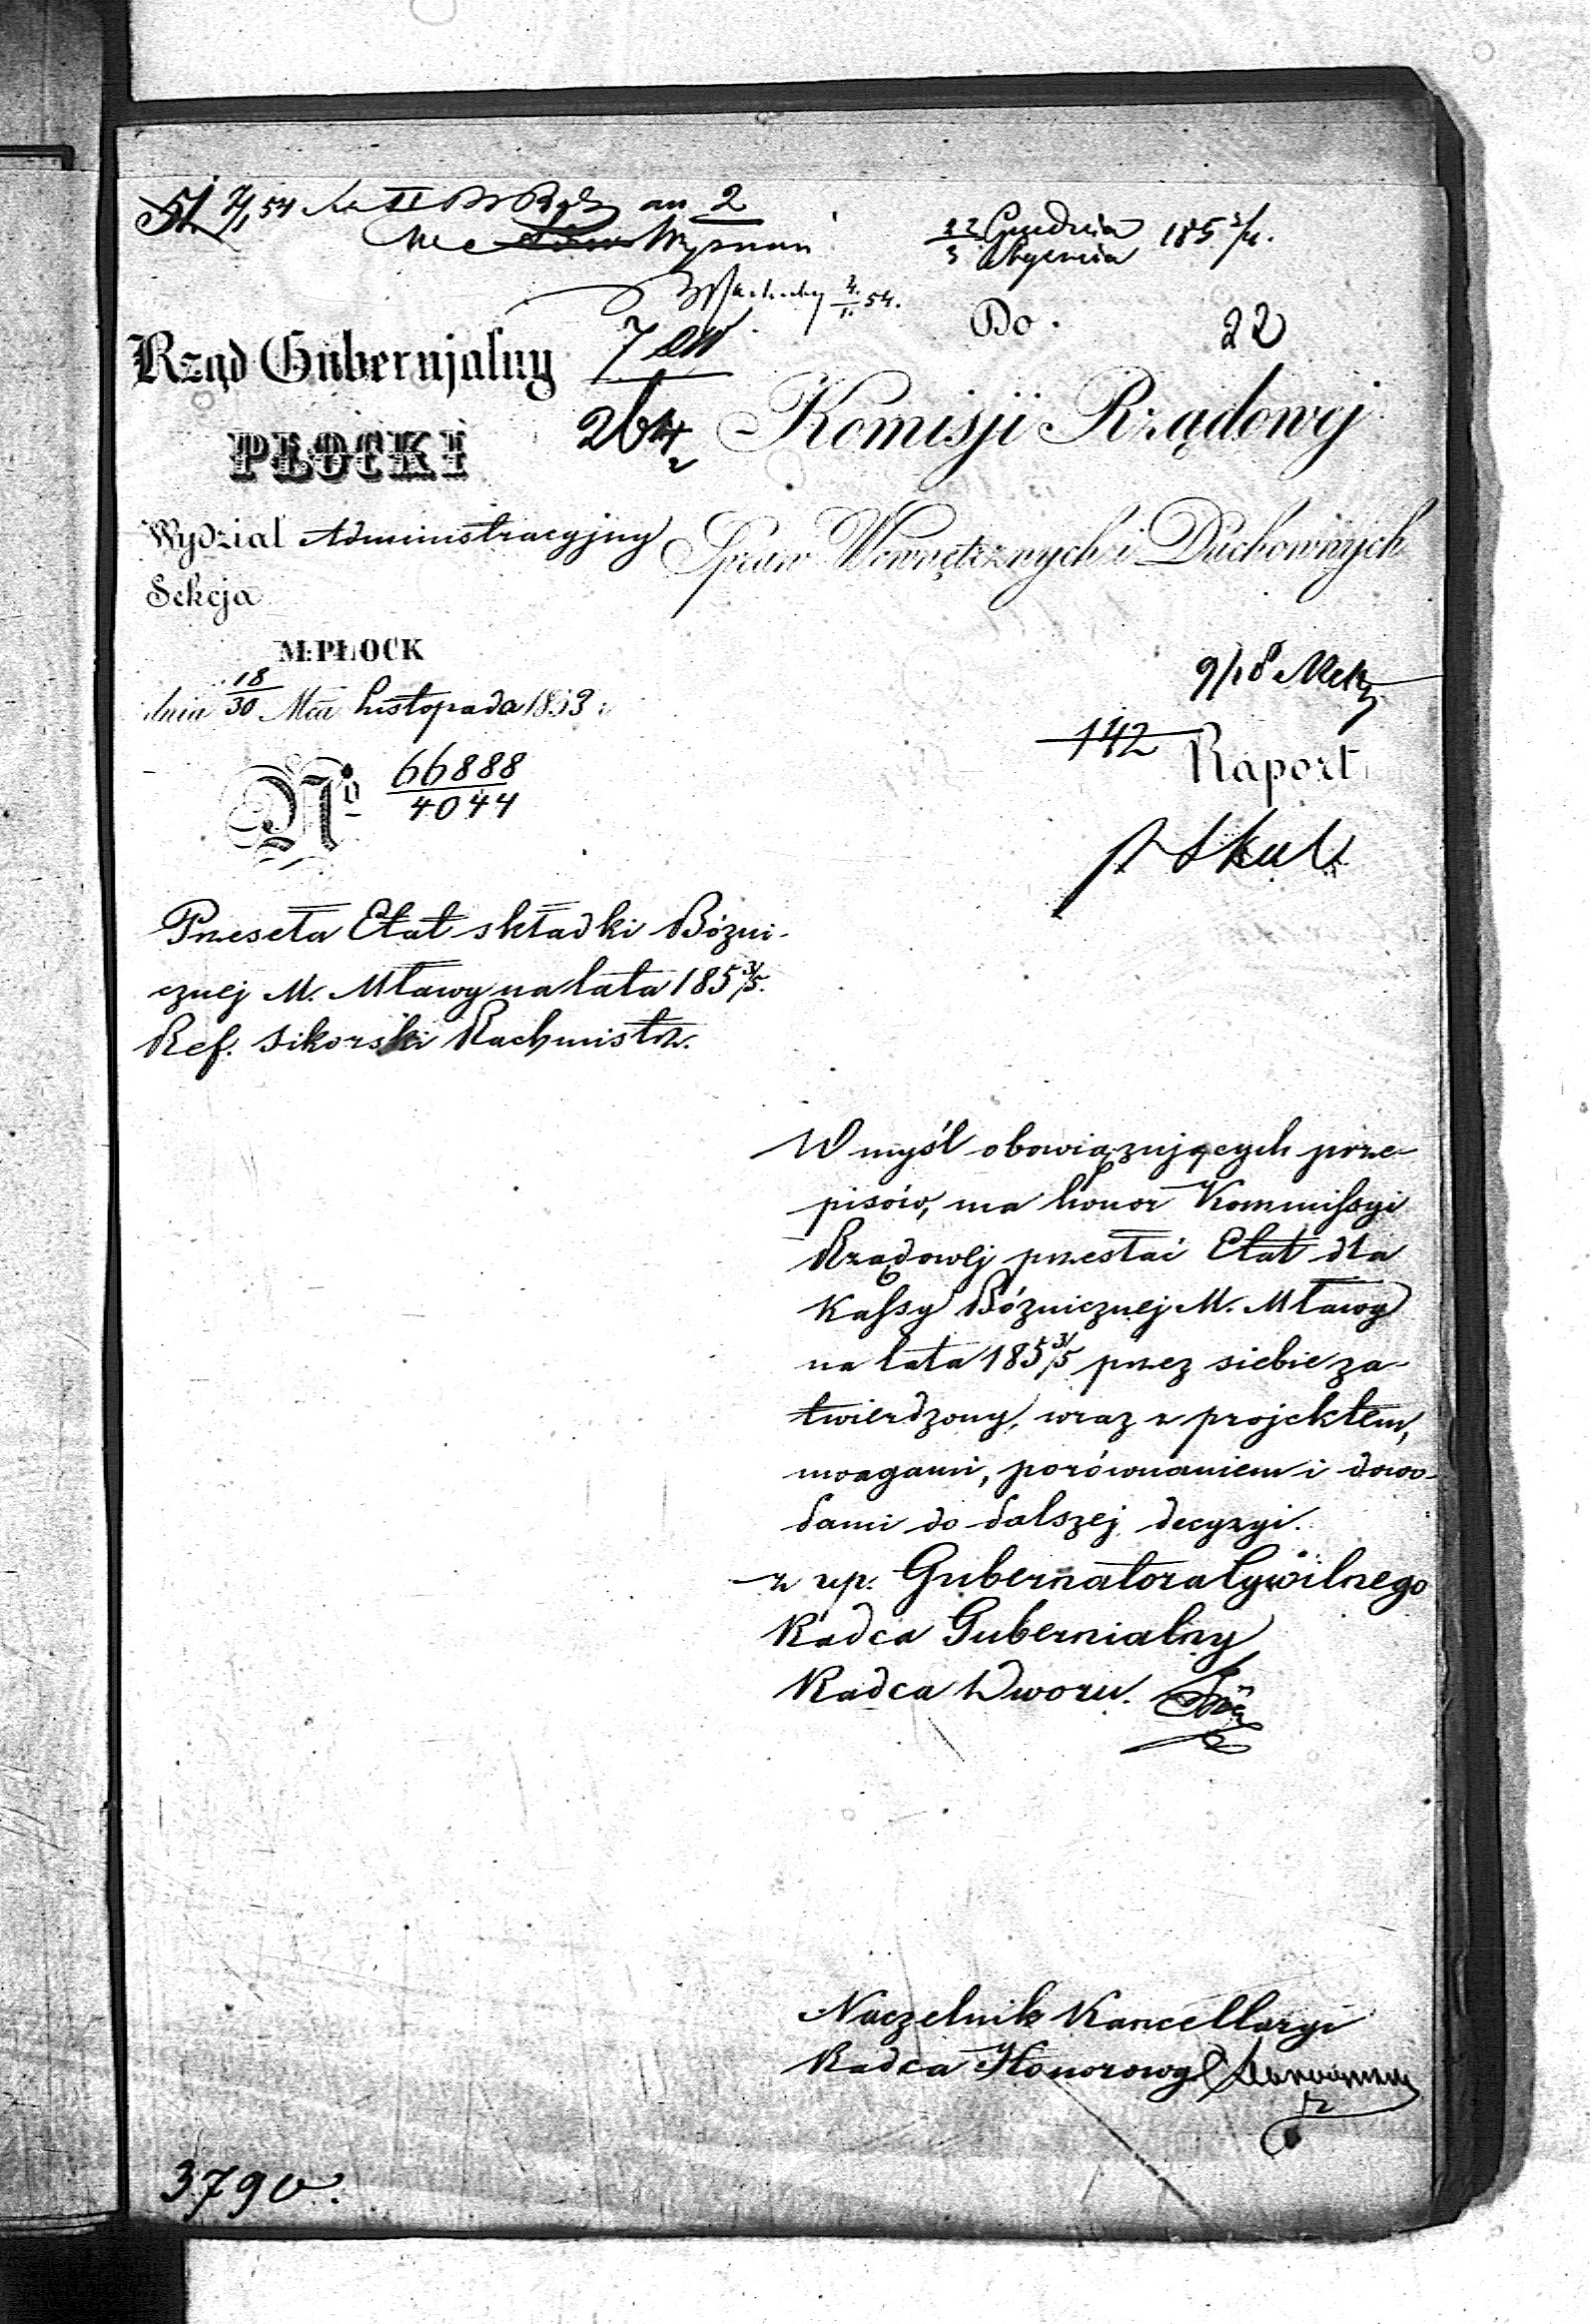 51 7/1 54 an 2
Wyznań
22 Grudnia
3 Stycznia 185 3/4.
4/1. 54.
Do 22
Rząd Gubernjalny
7
264
PŁOCKI
Komisji Rządowej
Wydział Administracyjny
Spraw Wewnętrznych i Duchownych
Sekcja
M: PŁOCK
dnia 18/30 Mca Listopada 1853 r
9/18
142
Raport
No 66888/4044
Przeseła Etat składki Bózni-
cznej M. Mławy na lata 185 3/5.
Ref. Sikorski Rachmistrz.
W myśl obowiązujących prze-
pisów, ma honor Kommissyi
Rządowej przesłać Etat dla
Kassy Bóżnicznej M. Mławy
na lata 185 3/5 przez siebie za-
twierdzony, wraz z projektem,
uwagami, porównaniem i dowo-
dami do dalszej decyzyi.
z up. Gubernatora Cywilnego
Radca Gubernialny
Radca Dworu.
Naczelnik Kancellaryi
Radca Honorowy
3790.